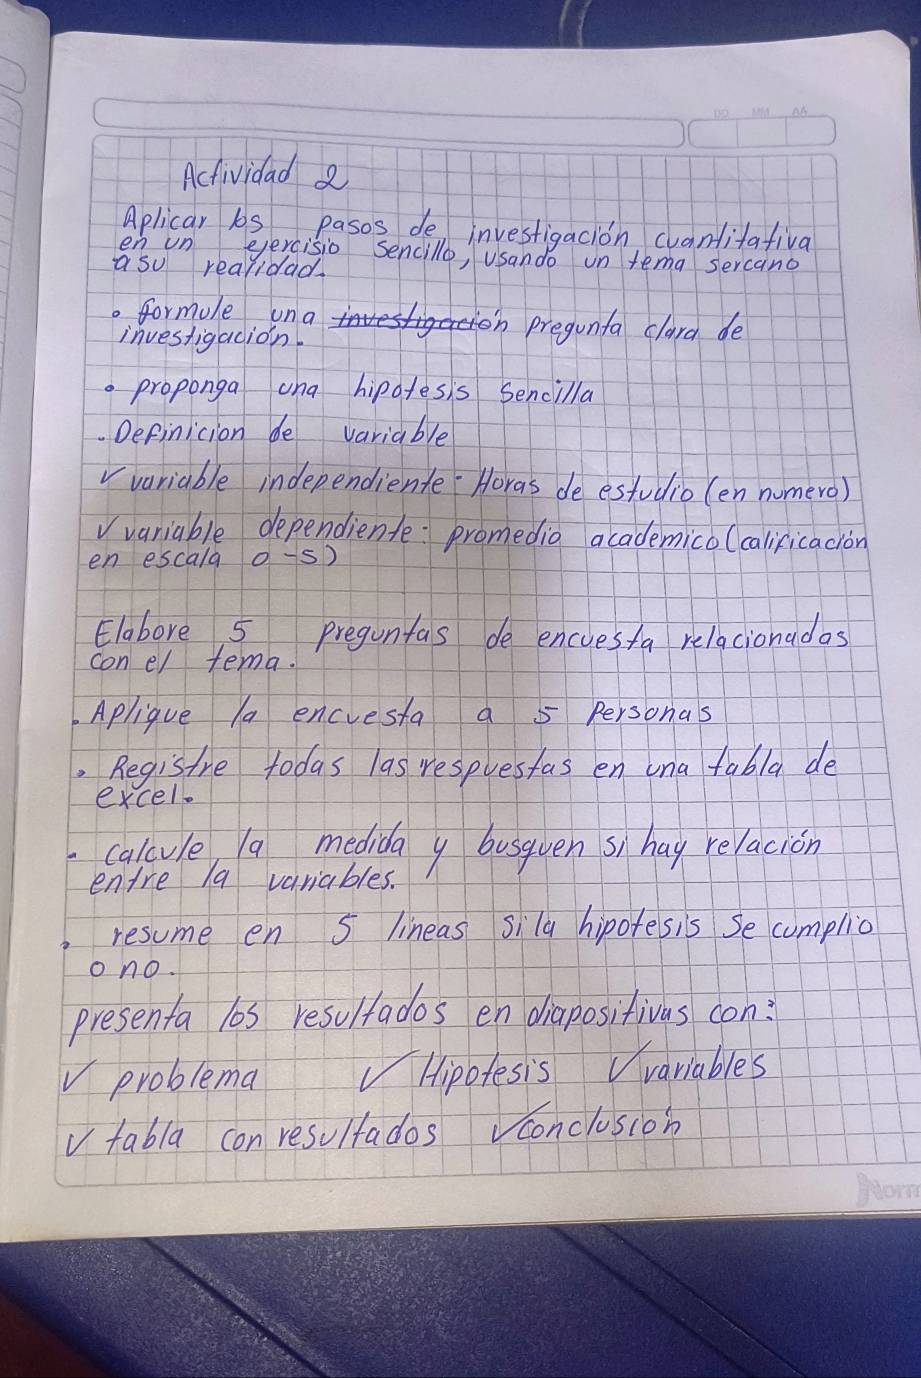 DD MM AA
Actividad 2
Aplicar los pasos de investigación cuantitativa
en un ejercisio sencillo, usando un tema sercano
a su realidad.
• formule una investigación pregunta clara de
investigación.
• proponga una hipotesis sencilla
. Definicion de variable
✓ variable independiente: Horas de estudio (en numero)
✓ variable dependiente: promedio academico (calificación
en escala 0-5)
Elabore 5 preguntas de encuesta relacionadas
con el tema.
. Aplique la encuesta a 5 personas
• Registre todas las respuestas en una tabla de
excel.
• calcule la medida y busquen si hay relación
entre la variables.
• resume en 5 lineas si la hipotesis se cumplio
o no.
presenta los resultados en diapositivas con:
✓ problema ✓ Hipotesis ✓ variables
✓ tabla con resultados ✓ conclusión
Norm